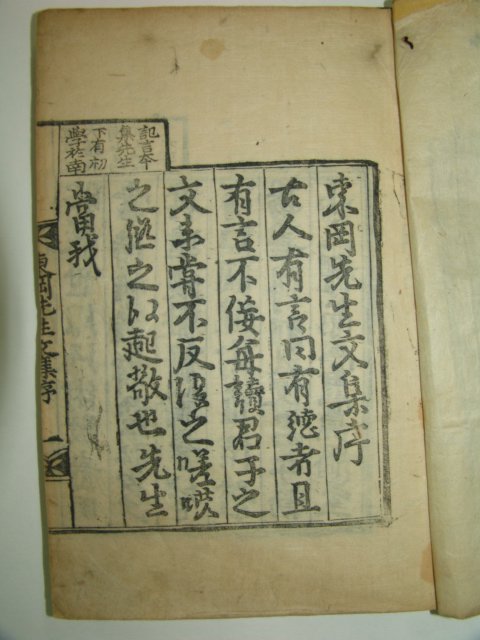 東岡先生文集序
古人有言曰有德者且
有言不佞每讀君子之
文未嘗不反復之嗟嘆
之繼之以起敬也先生
當我
記言本
集先生
下有初
學於南
東岡先生文集序
一